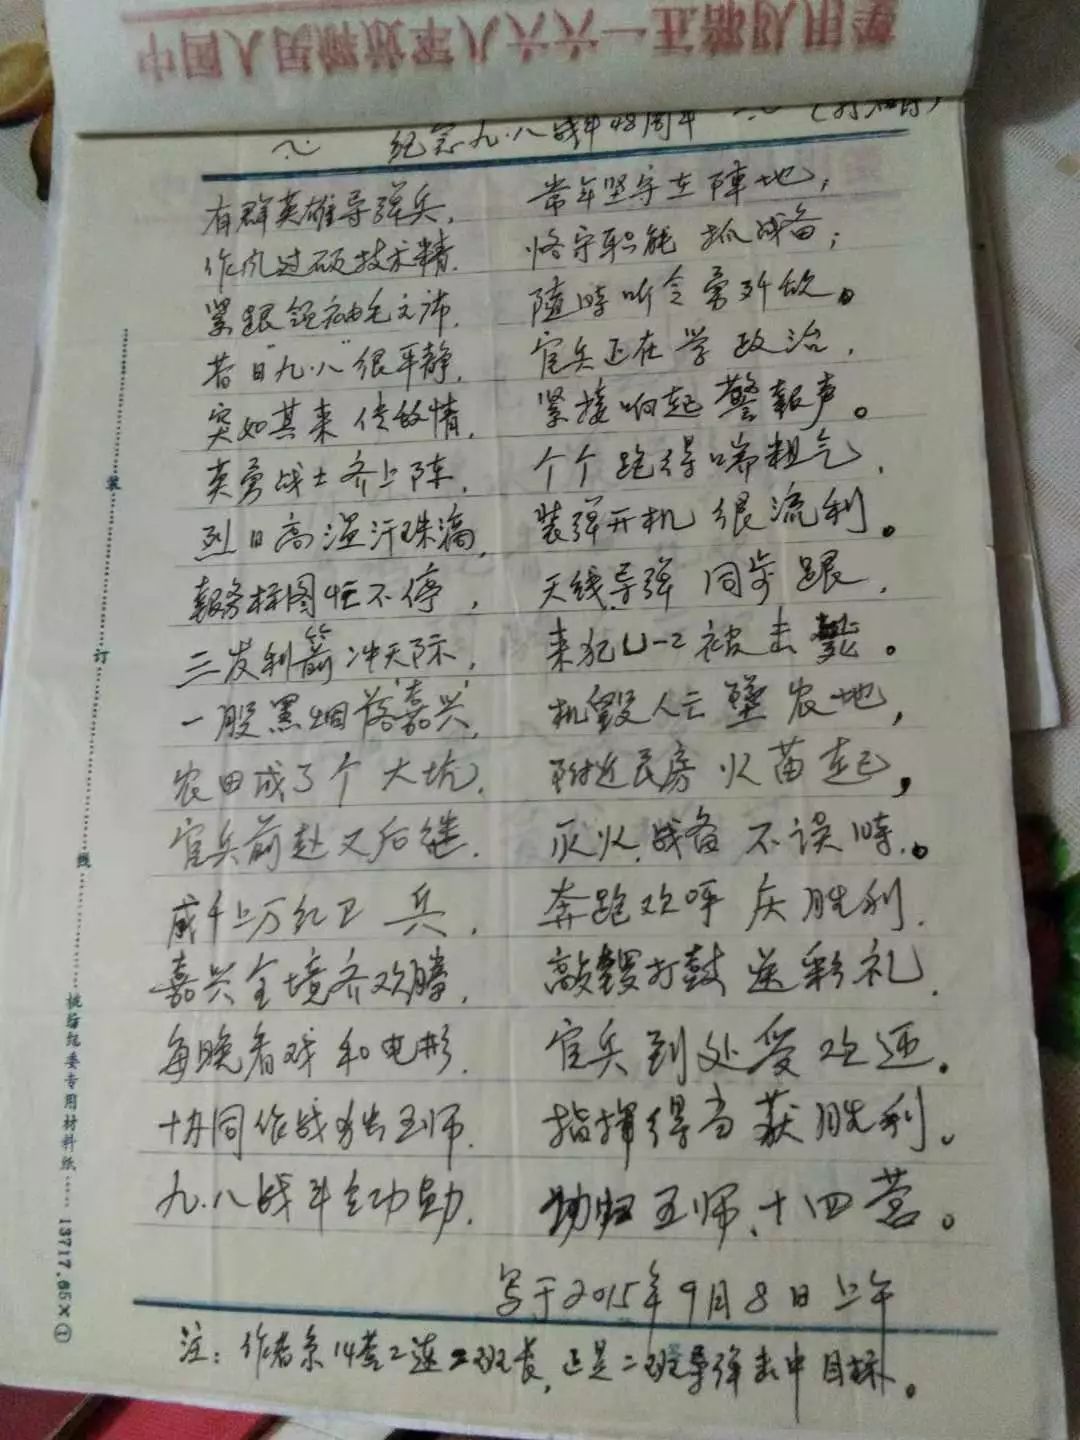 中国人民解放军一六六八
∴ 纪念九·八战斗48周年 ∴
有群英雄导弹兵， 常年坚守在陣地；
作风过硕技术精， 恪守职能抓战备；
紧跟领袖毛 随時听令勇歼敌。
昔日"九·八"很平静， 官兵正在学政治，
突如其来传敌情， 紧接响起警報声。
英勇战士齐上阵， 个个跑得喘粗气，
烈日高温汗珠滴， 装弹开机很流利。
報务标图忙不停， 天线、导弹同步跟，
三发利箭冲天际， 来犯U-2被击毙。
一股黑烟落"嘉兴"， 机毁人亡墜农地，
农田成了个大坑， 附近民房火苗起，
官兵前赴又后继， 灭火、战备不误時。
成千上万红卫兵， 奔跑欢呼庆胜利，
嘉兴全境齐欢腾， 敲锣打鼓送彩礼，
每晚看戏和电影， 官兵到处受欢迎。
协同作战 五师， 指挥得当获胜利。
九·八战斗立功勋， 勋归五师、十四营。
写于2015年9月8日上午
注：作者系14营二连二班长，正是二班导弹击中目标。
装
订
线
桃 纪委专用材料纸 13717.65×①